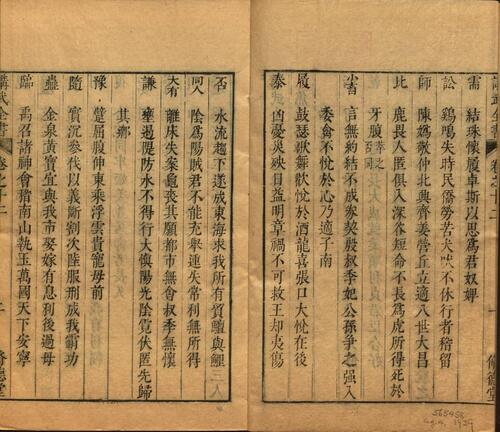 需　結珠懷履卓斯以思為君奴婢
訟　鷄鳴失時民僑勞苦犬吠不休行者稽留
師　陳媯敬仲北興齊姜營丘立適八世大昌
比　鹿畏人匿俱入深谷短命不長為虎所得死於
牙腹
小畜　言無約結不成劵契殷叔季妃公孫爭之强入
委禽不悅於心乃適子南
履　鼓瑟歌舞歡悅於酒龍喜張口大悅在後
泰　凶憂災殃日益明章禍不可救三郤夷傷
否　水流趨下遂成東海求我所有買鱣與鯉
同人　陰為陽賊君不能克舉連失常利無所得
大有　離床失案龜喪其願都市無會叔季無懷
謙　壅遏隄防水不得行火慎陽光陰霓伏匿走歸
其鄉
豫　蹇屈腹伸東乘浮雲貴寵毋前
隨　實沉參伐以義斷割次陸服刑成我霸功
蠱　金泉黃寶宜與我市娶嫁有息利後過母
臨　禹召諸神會稽南山執玉萬國天下安寧
講武全書
卷之十二
二
脩德堂
565458
1929